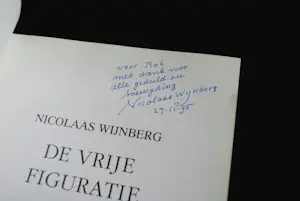 voor Bob
met dank voor
alle geduld en
toewijding
Nicolaas Wijnberg
27-11-95
NICOLAAS WIJNBERG
DE VRIJE
FIGURATIE